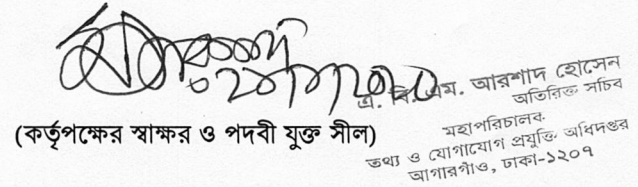 এ. বি. এম. আরশাদ হোসেন
অতিরিক্ত সচিব
মহাপরিচালক
তথ্য ও যোগাযোগ প্রযুক্তি অধিদপ্তর
আগারগাঁও, ঢাকা-১২০৭
(কর্তৃপক্ষের স্বাক্ষর ও পদবী যুক্ত সীল)